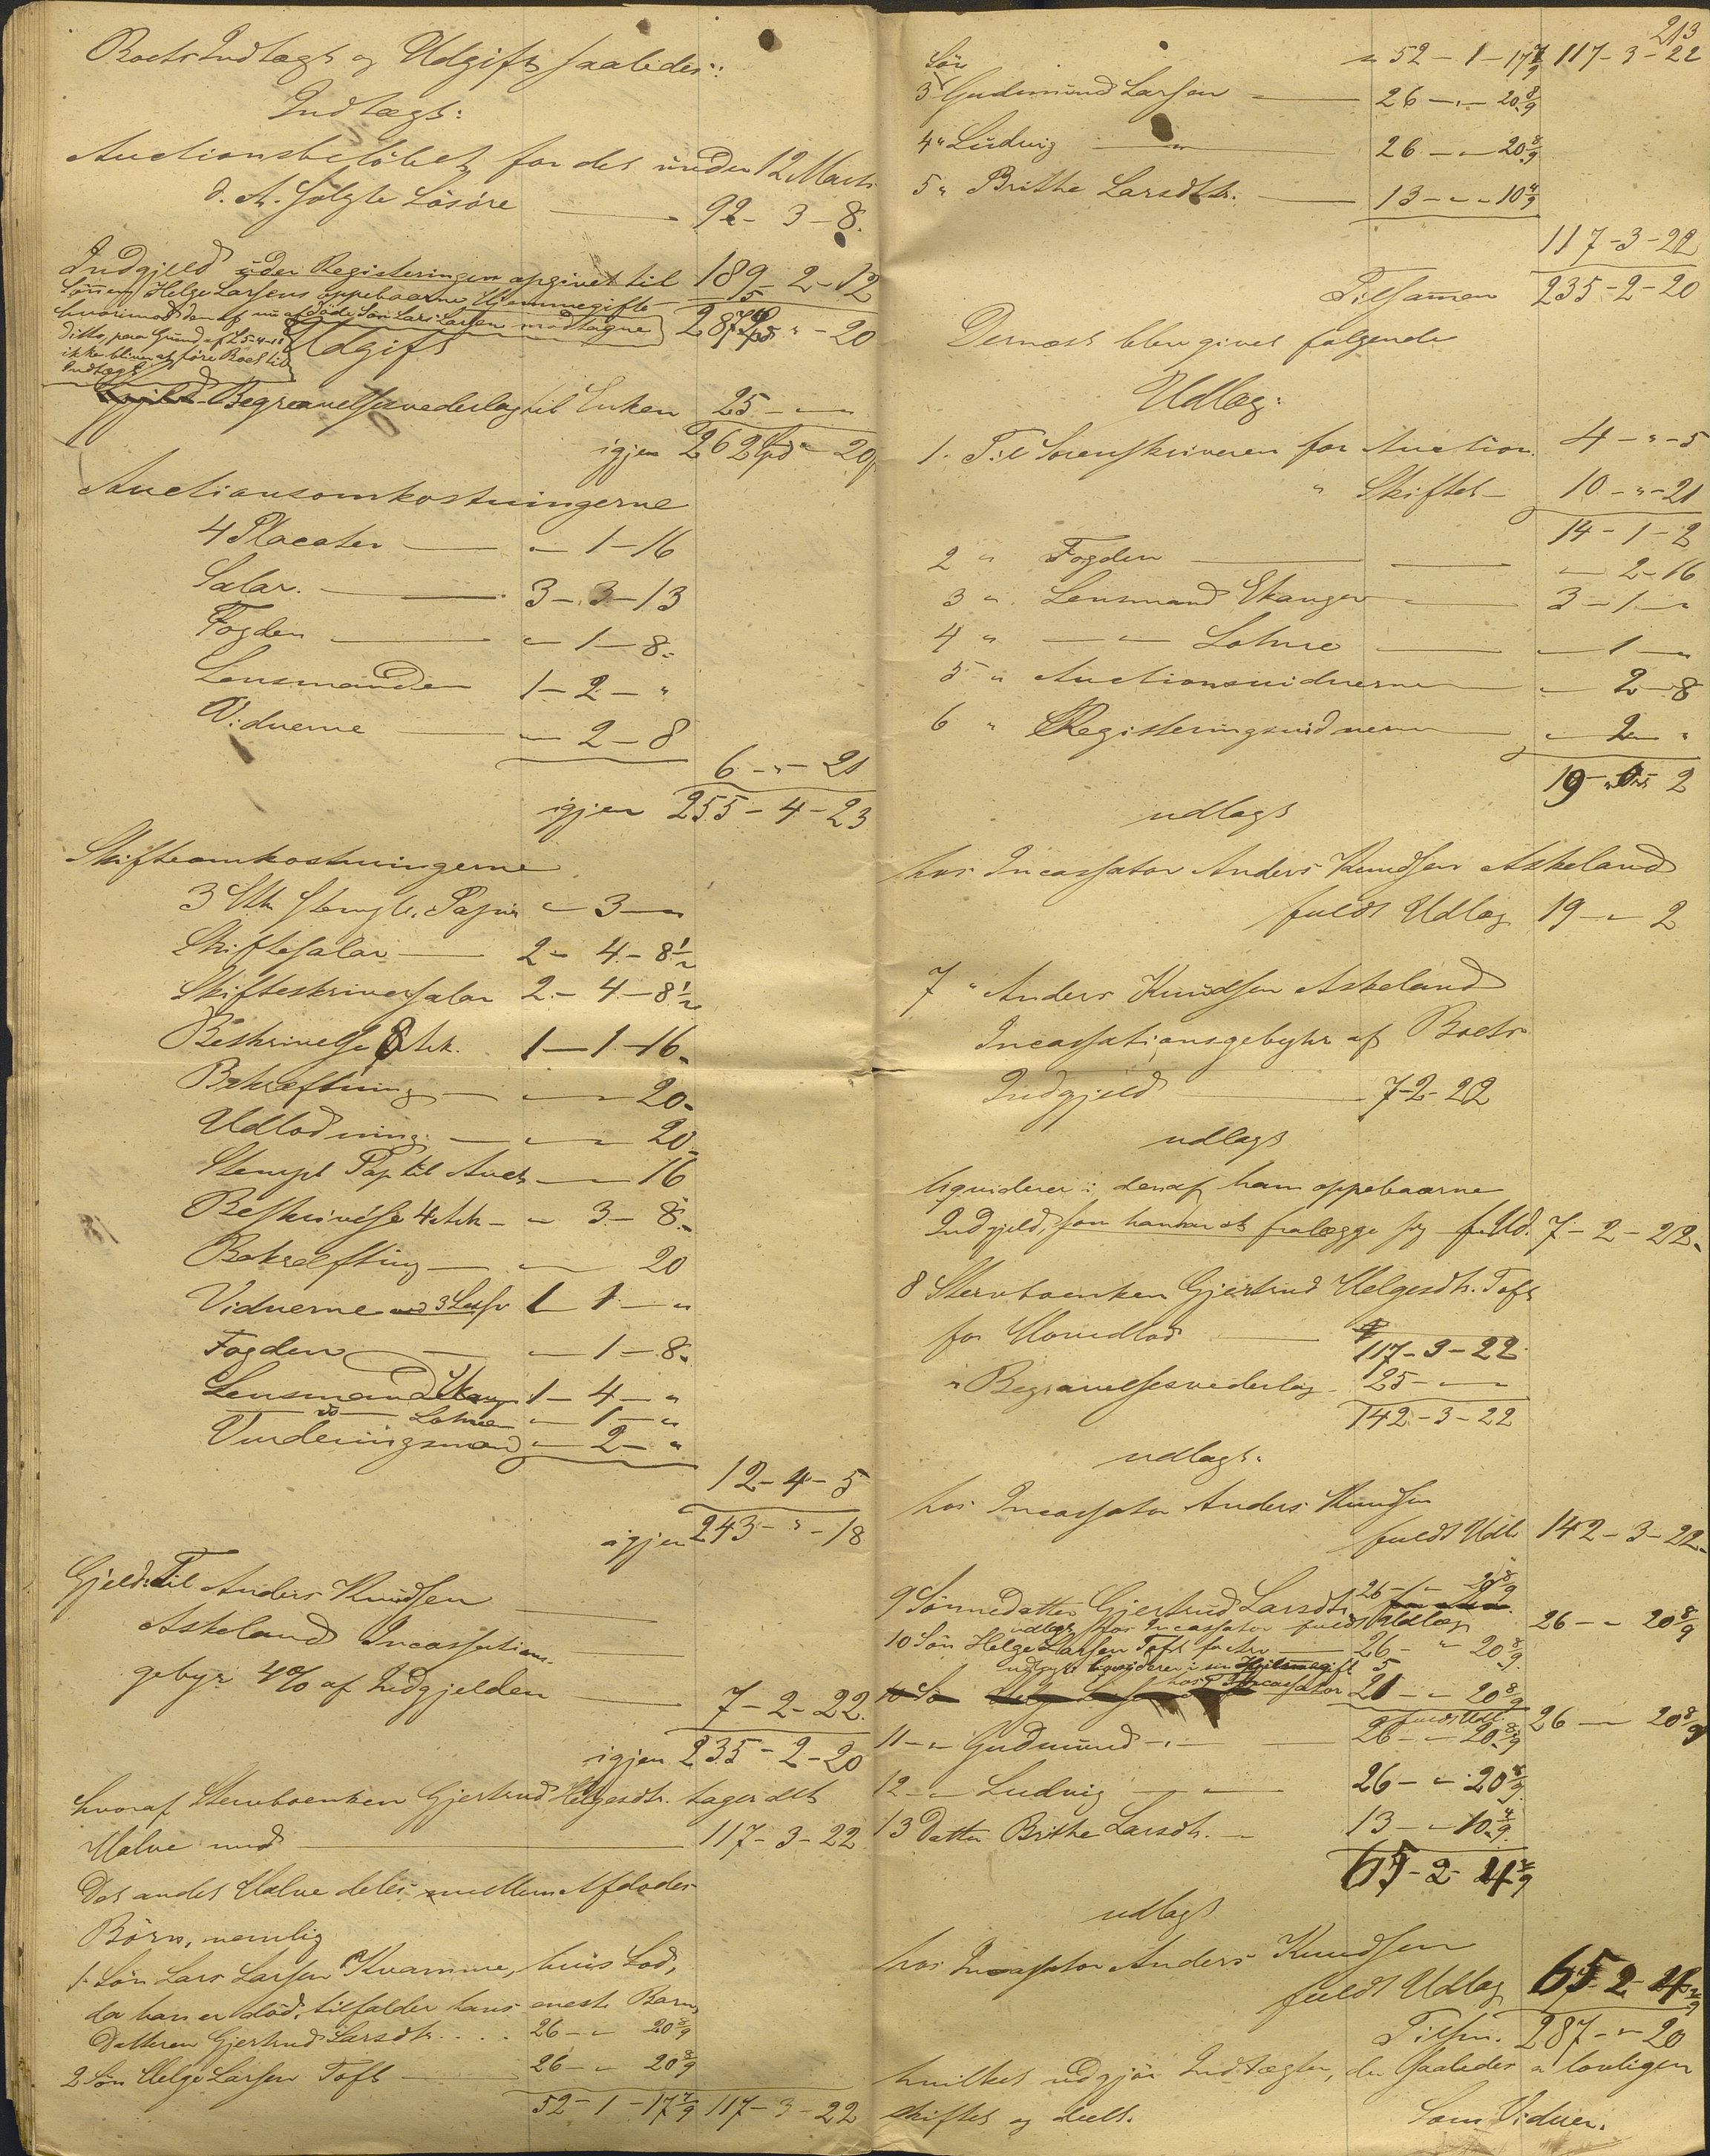 Boets Indtægt og Udgift saaledes:
Indtægt:
Auctionsbeløbet for det under 12 Marts
d. A. solgte Løsøre — 92 - 3 - 8.
Indgjeld under Registeringen opgivet til 189 - 2 - 12
Sønnen Helge Larsens oppebaarne Hjemmegifte — 5
hvorimod den af nu afdøde Søn Lars Larsen modtagne 287 - " - 20
ditto, paa Grund af
ikke bliver at føre Boet til
Indtægt
Udgift
Begravelsesvederlag til Enken 25 - " - "
igjen 262 - " - 20
Auctionsomkostningerne
4 Placater — " - 1 - 16
Salar. — 3 - 3 - 13
Fogden — " - 1 - 8.
Lensmanden 1 - 2 - "
Vidnerne — " - 2 - 8
6 - " - 21
igjen 255 - 4 - 23
Skifteomkostningerne
3 Stk stemplt. Papir " - 3 - "
Skiftesalar — 2 - 4 - 8 1/2
Skifteskriversalar 2 - 4 - 8 1/2
Beskrivelse 8 Ark. 1 - 1 - 16
Bekræftning — " - " 20
Udlodning — " - " 20
Stempl Pap til Auct — " 16
Beskrivelse 4 Ark — " - 3 - 8.
Bekræftning — " - 20
Vidnerne 1 - 1 - "
Fogden — " - 1 - 8.
Lensmand Ekanger 1 - 4 - "
— do — Lohne " - 1 - "
Vurderingsmænd " - 2 - "
12 - 4 - 5
igjen 243 - " - 18
Gjeld: Til Anders Knudsen
Askeland Incassations-
gebyr 4% af Indgjelden — 7 - 2 - 22.
igjen 235 - 2 - 20
hvoraf Stervboenken Gjertrud Helgesdtr. tager det
Halve med — 117 - 3 - 22
Det andet Halve deles mellem Afdødes
Børn, nemlig
1. Søn Lars Larsen Kvamme, hvis Lod,
da han er død, tilfalder hans eneste Barn,
Datteren Gjertrud Larsdtr. . . . 26 - " 20 8/9
2 Søn Helge Larsen Toft — 26 - " 20 8/9
52 - 1 - 17 7/9 117 - 3 - 22
213
" 52 - 1 - 17 7/9 117 - 3 - 22
3 Søn Gudmund Larsen — 26 - " - 20 8/9
4 " Ludvig — " — 26 - " 20 8/9
5 " Brithe Larsdtr. — 13 - " - 10 4/9
117 - 3 - 22
Tilsammen 235 - 2 - 20
Dernæst blev givet følgende
Udlæg:
1. Til Sorenskriveren for Auction. 4 - " - 5
" Skiftet — 10 - " - 21
14 - 1 - 2
2 " Fogden — " - 2 - 16
3 " Lensmand Ekanger — 3 - 1 - "
4 " — " — Lohne — " - 1 - "
5 " Auctionsvidnerne — " - 2 - 8
6 " Registeringsvidnerne — " - 2 - "
19 - " - 2
udlagt
hos Incassator Anders Knudsen Askeland
fuldt Udlæg 19 - " 2
7 " Anders Knudsen Askeland
Incassationsgebyhr af Boets
Indgjeld — 7 - 2 - 22
udlagt
liqviderer i den af ham oppebaarne
Indgjeld, som han har at fralægge sig f. Udl. 7 - 2 - 22.
8 Stervboenken Gjertrud Helgesdtr. Toft
for Hovedlod — 117 - 3 - 22
" Begravelsesvederlag 25 - " - "
142 - 3 - 22
udlagt.
hos Incassator Anders Knudsen
fuldt Udl 142 - 3 - 22.
9 Sønnedatter Gjertrud Larsdtr. 26 - " - 20 8/9
udlagt hos Incassator fuldt Udlæg 26 - " 20 8/9
10 Søn Helge Larsen Toft for Arv — 26 - " 20 8/9
udlagt: liqviderer i sin Hjemmegift 5
hos Incassator 21 - " 20 8/9
fuldt Udl. 26 - " 20 8/9
11 - " Gudmund — " — 26 - " 20 8/9
12 - " Ludvig — " — 26 - " 20 8/9
13 Datter Brithe Larsdtr. — 13 - " 10 4/9
65 - 2 - 4 2/9
udlagt
hos Incassator Anders Knudsen
fuldt Udlæg 65 - 2 - 4 2/9
Tilsm. 287 - " - 20
hvilket udgjør Indtægten, der saaledes er lovligen
skiftet og deelt. Som Vidner.